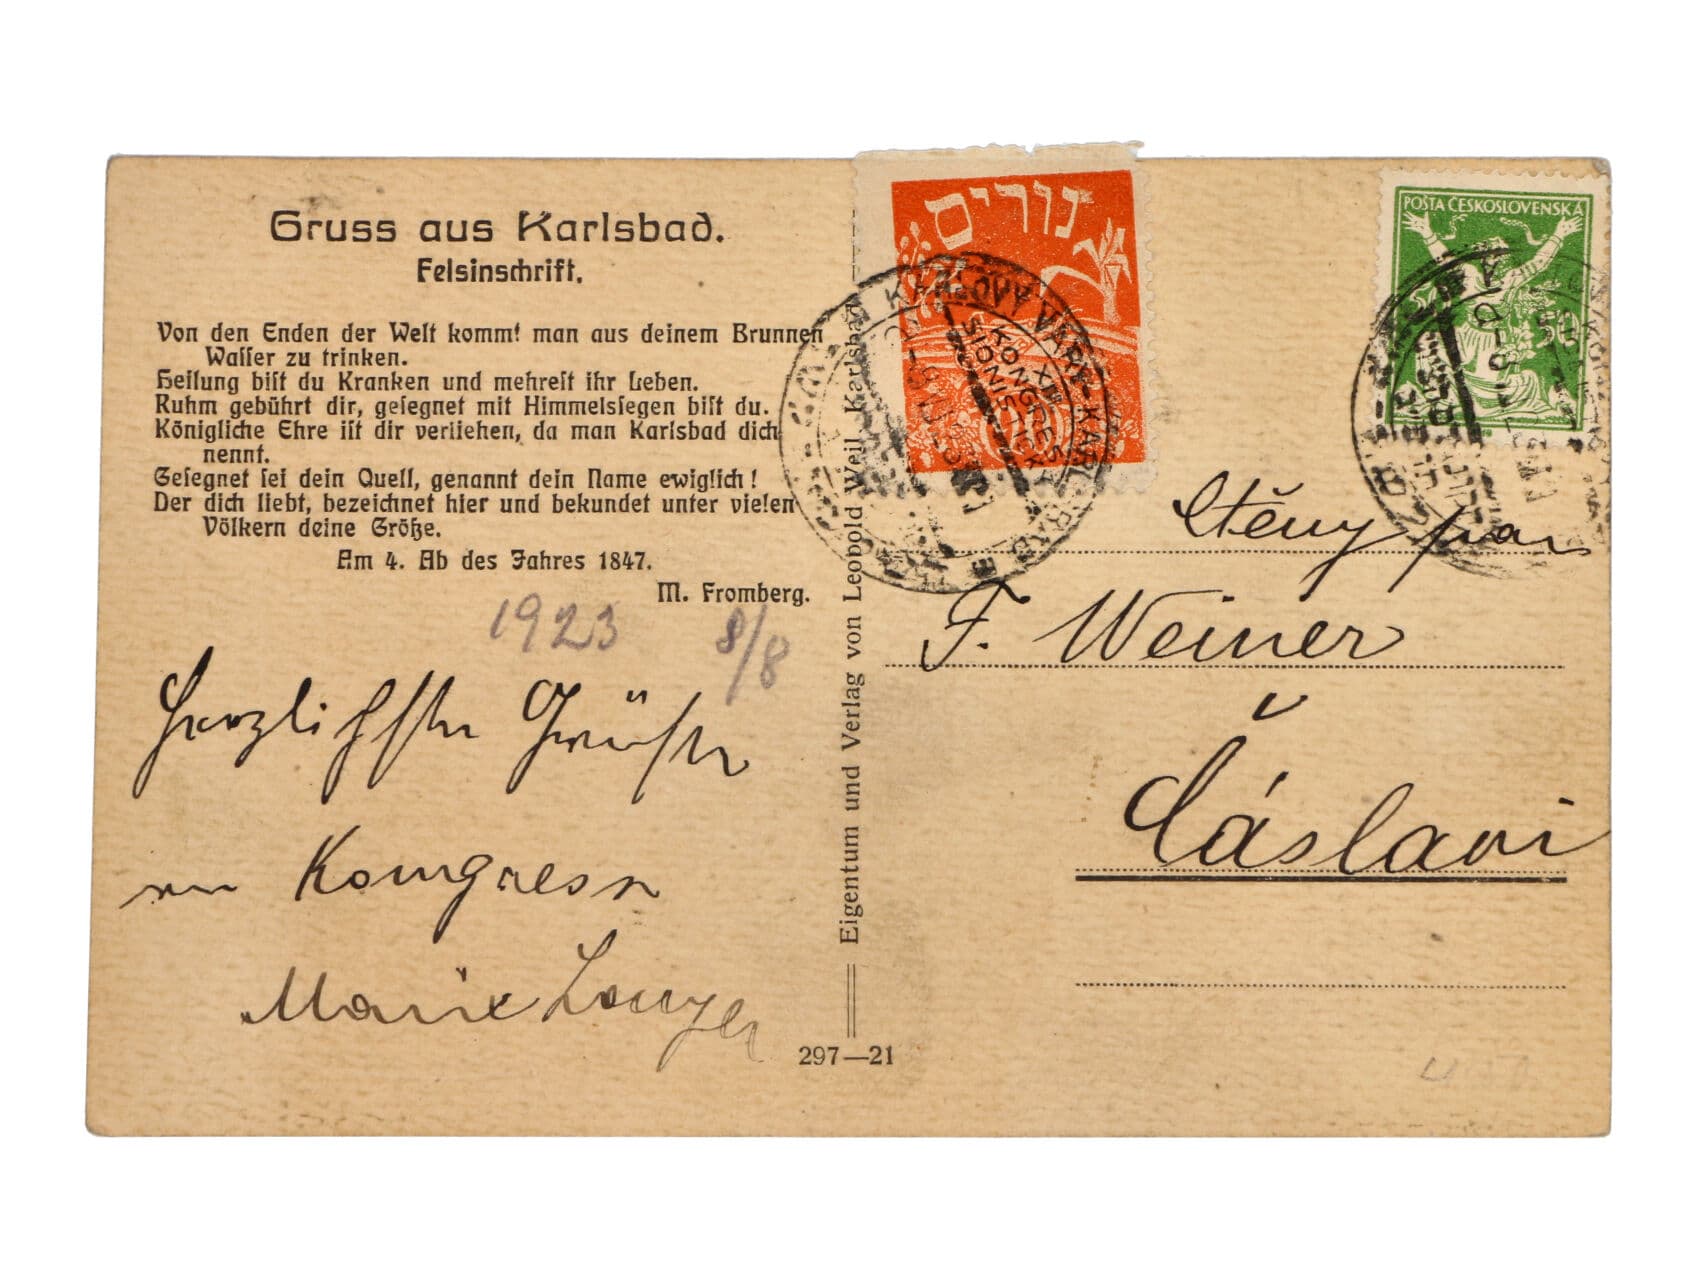 Gruss aus Karlsbad.
Felsinschrift.
Von den Enden der Welt kommt man aus deinem Brunnen
Wasser zu trinken.
Heilung bist du Kranken und mehrest ihr Leben.
Ruhm gebührt dir, gesegnet mit Himmelssegen bist du.
Königliche Ehre ist dir verliehen, da man Karlsbad dich
nennt.
Gesegnet sei dein Quell, genannt dein Name ewiglich!
Der dich liebt, bezeichnet hier und bekundet unter vielen
Völkern deine Größe.
Am 4. Ab des Jahres 1847.
M. Fromberg.
1923 8/8
Herzlichste Grüße
Kongress
Marie
Eigentum und Verlag von Leopold Weil, Karlsbad
297—21
נורים
KARLOVY VARY - KARLSBAD
XIII
KONGRES
SIONISTICKÝ
POŠTA ČESKOSLOVENSKÁ
50
Ctěný pan
F. Weiner
v
Čáslavi